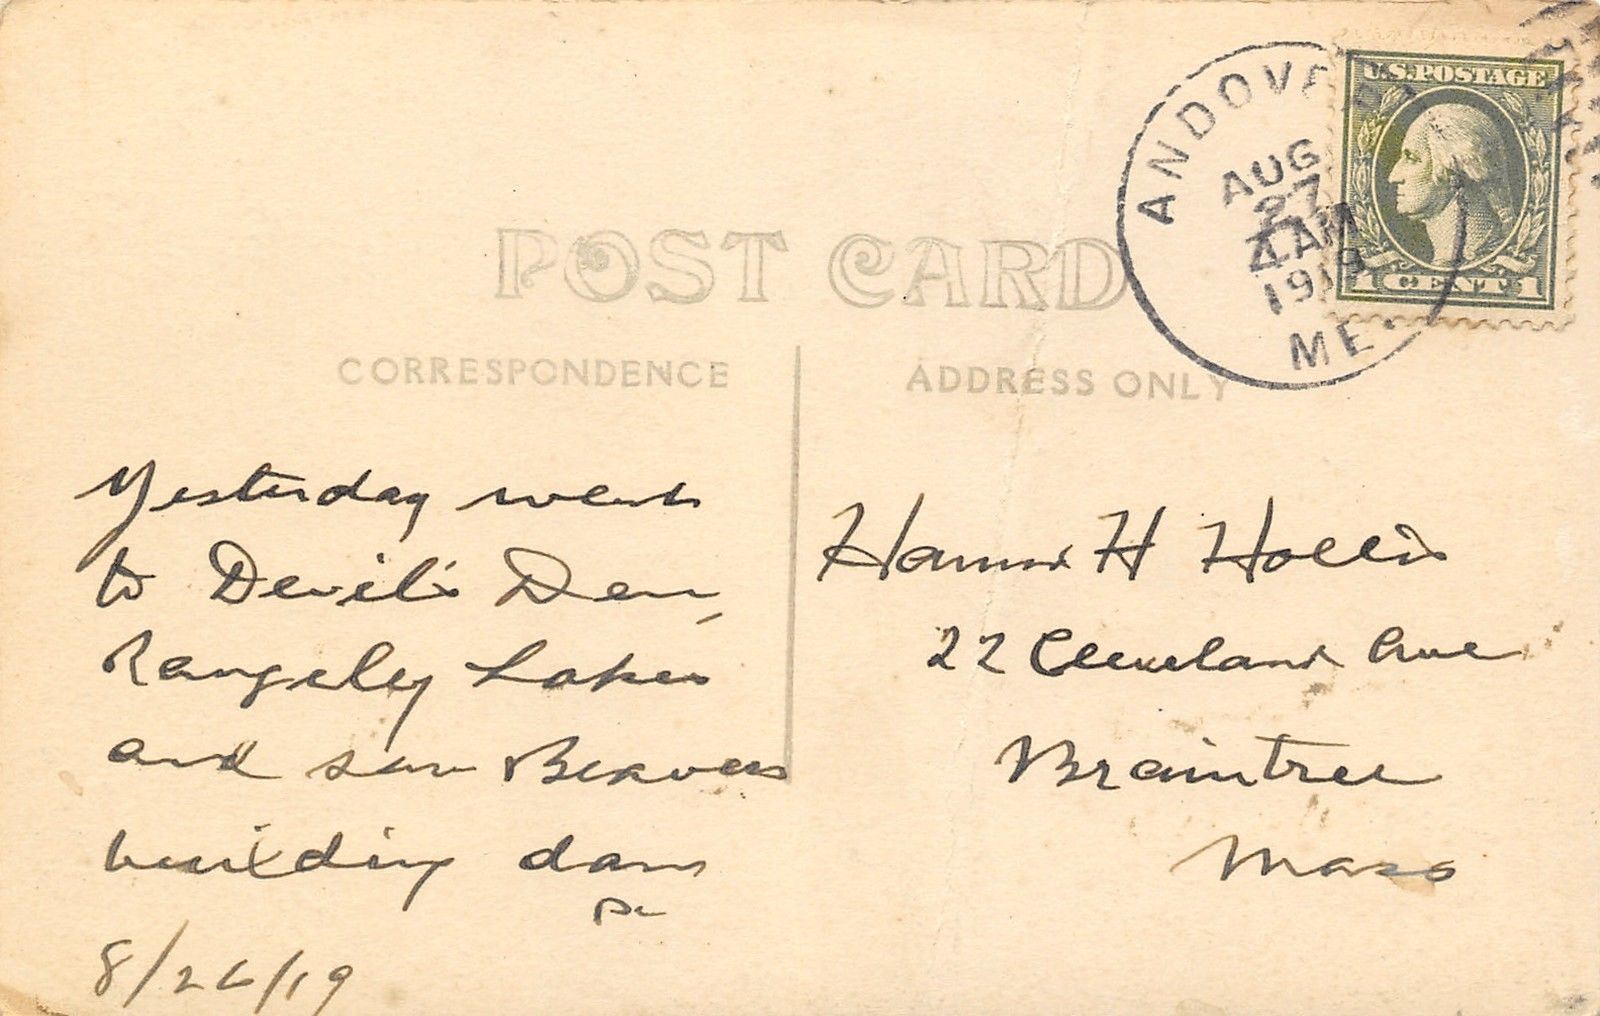 POST CARD
CORRESPONDENCE
ADDRESS ONLY
ANDOVER
AUG
27
4 AM
1919
ME.
U.S. POSTAGE
1 CENT 1
Yesterday went
to Devil's Den,
Rangeley Lakes
and saw Beavers
building dam
Pa
8/26/19
H Hollis
22 Cleveland Ave
Braintree
Mass